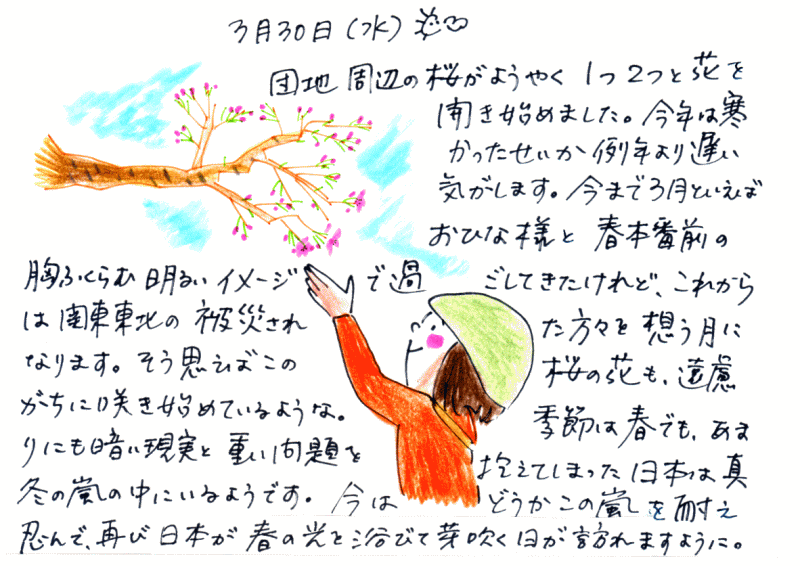 3月30日(水)
団地周辺の桜がようやく1つ2つと花を
開き始めました。今年は寒
かったせいか例年より遅い
気がします。今まで3月といえば
おひな様と春本番前の
胸ふくらむ明るいイメージで過ごしてきたけれど、これから
は関東東北の被災された方々を想う月に
なります。そう思えばこの桜の花も、遠慮
がちに咲き始めているような。季節は春でも、あま
りにも暗い現実と重い問題を抱えてしまった日本は真
冬の嵐の中にいるようです。今はどうかこの嵐を耐え
忍んで、再び日本が春の光と浴びて芽吹く日が訪れますように。